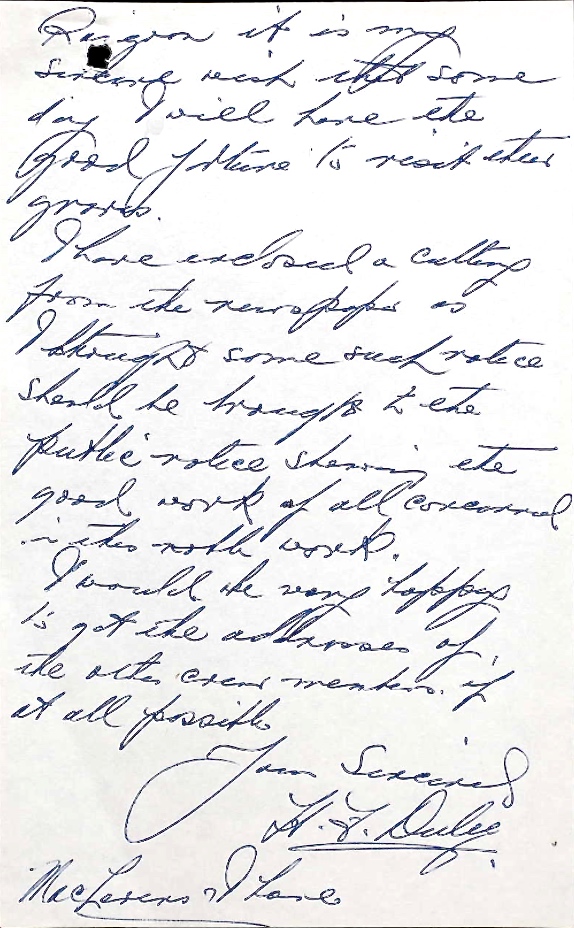 it is my
sincere wish that some
day I will have the
good fortune to visit their
graves.
I have enclosed a cutting
from the newspaper as
I thought some such notice
should be brought to the
public notice showing the
good work of all concerned
in this noble work.
I would be very happy
to get the addresses of
the other crew members if
at all possible
Yours Sincerely
MacLarens & I have